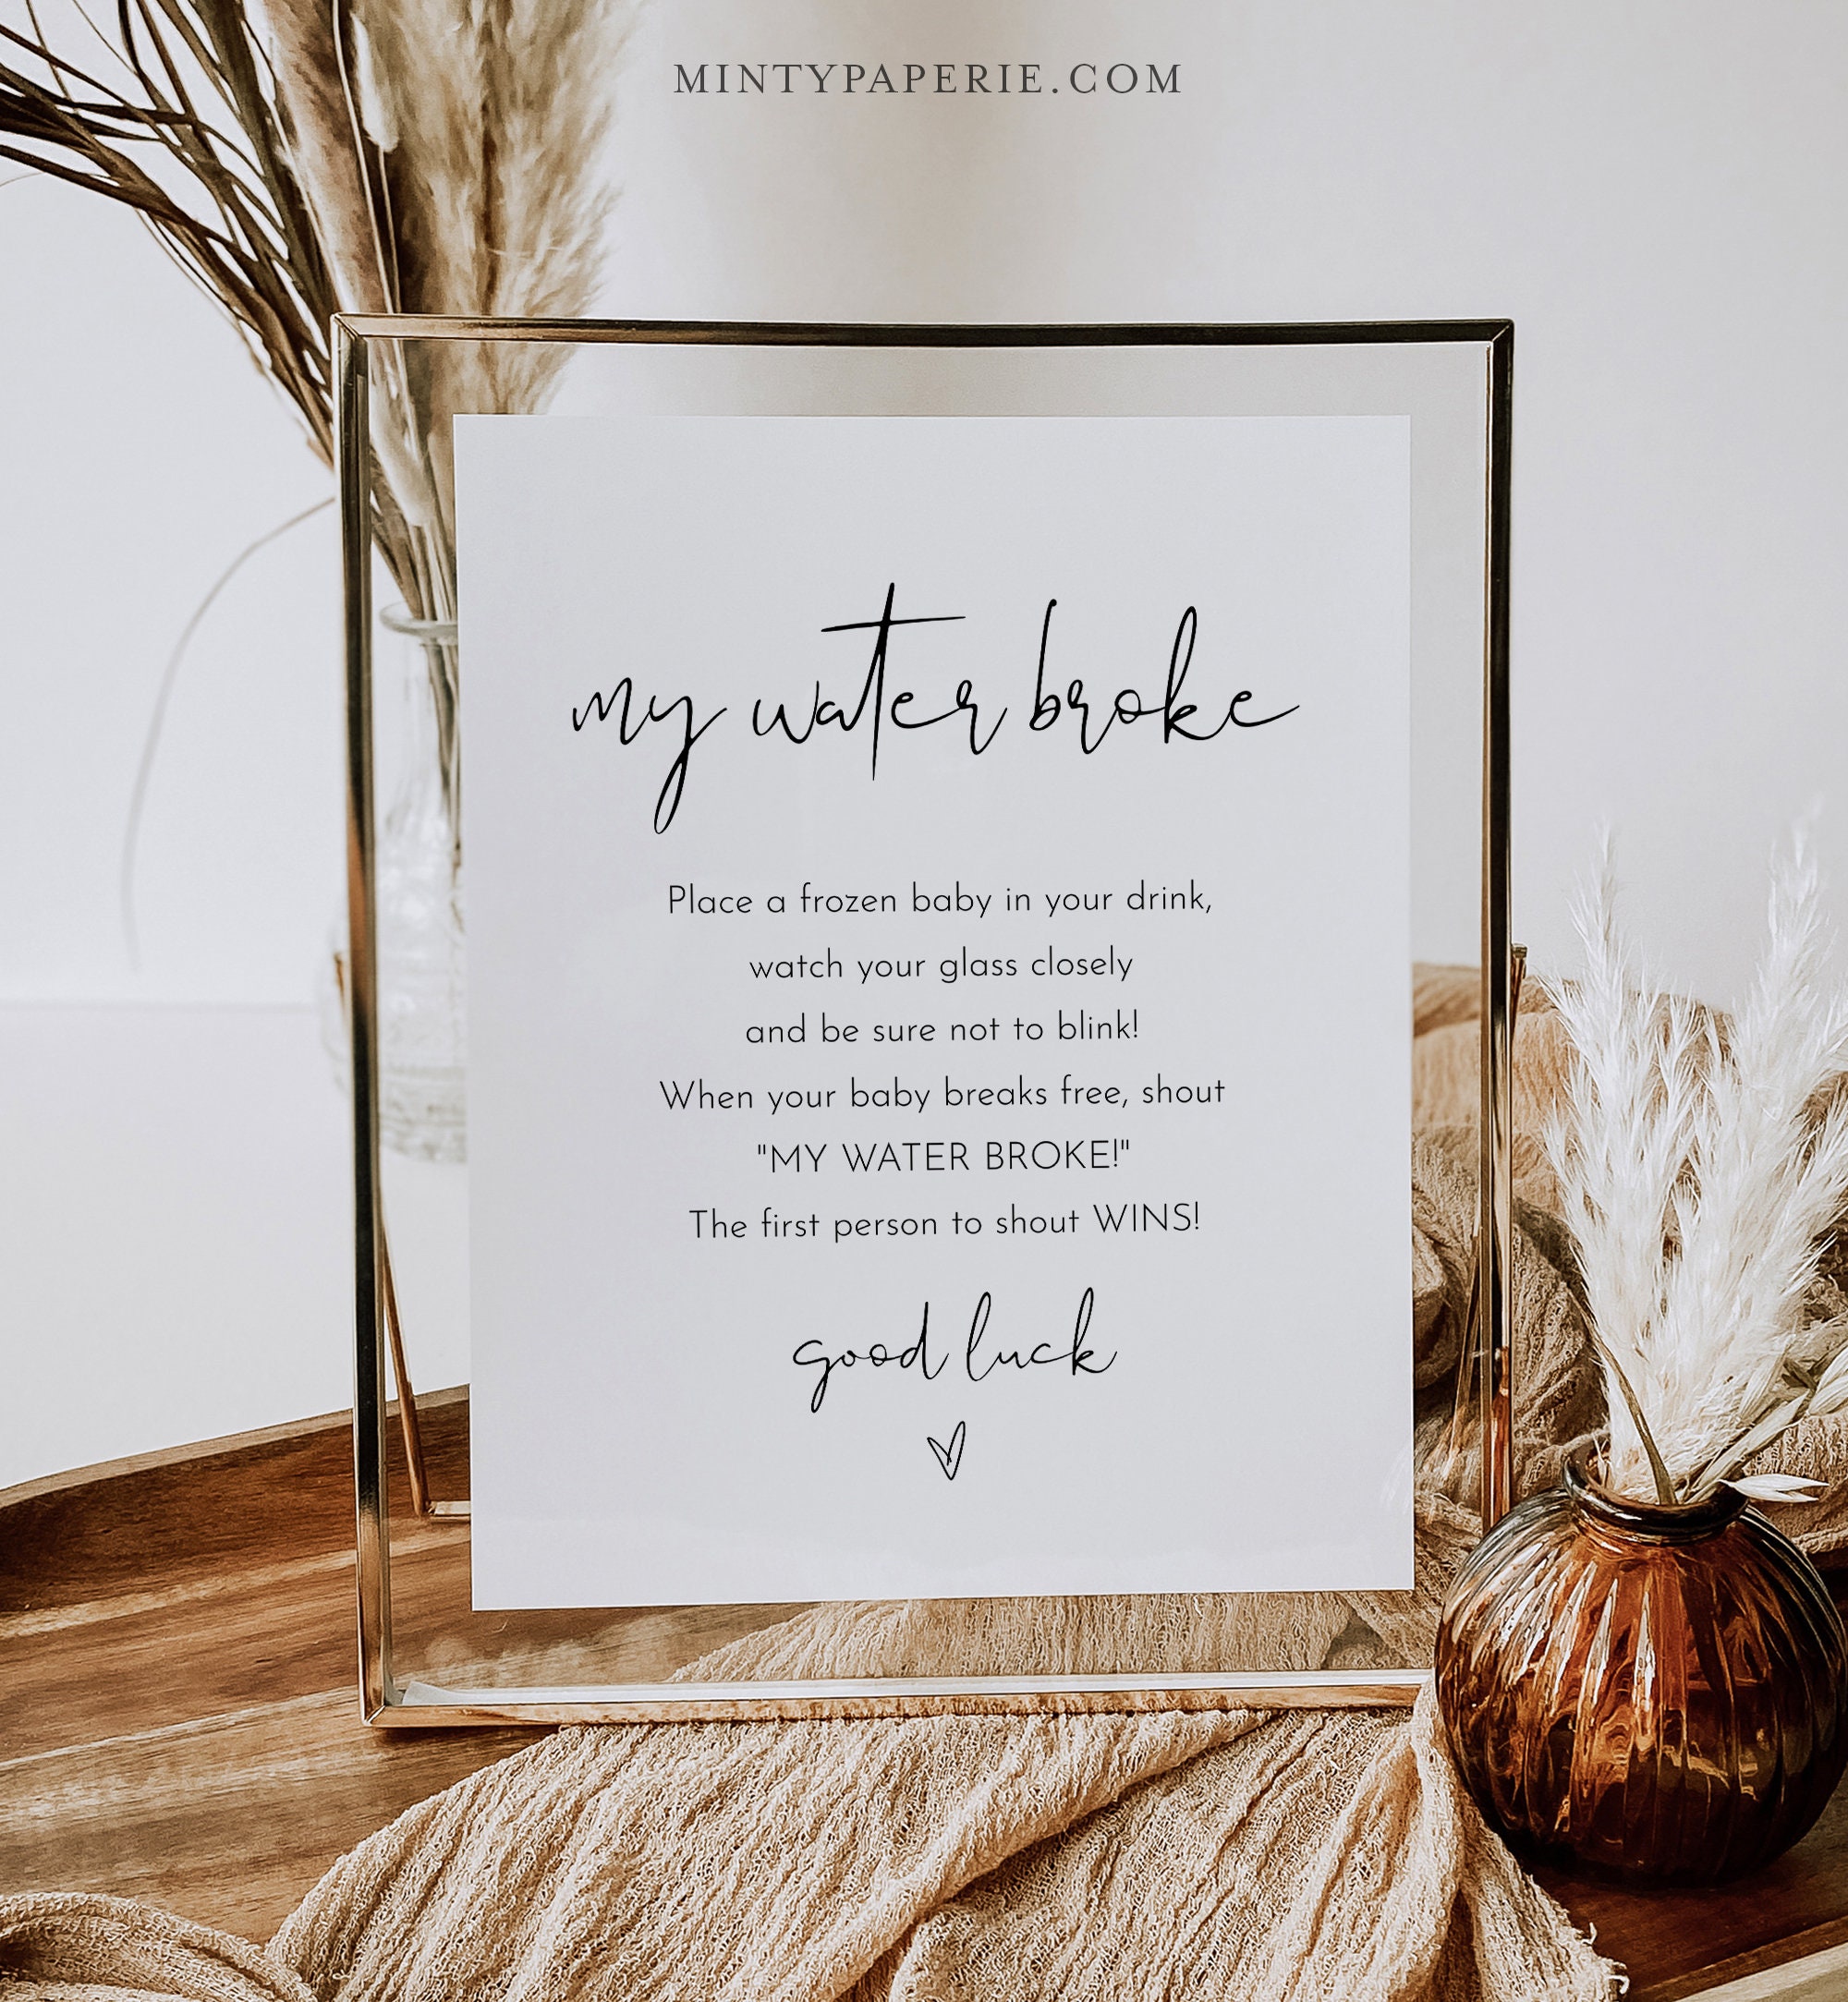 MINTYPAPERIE.COM
my water broke
Place a frozen baby in your drink,
watch your glass closely
and be sure not to blink!
When your baby breaks free, shout
"MY WATER BROKE!"
The first person to shout WINS!
good luck